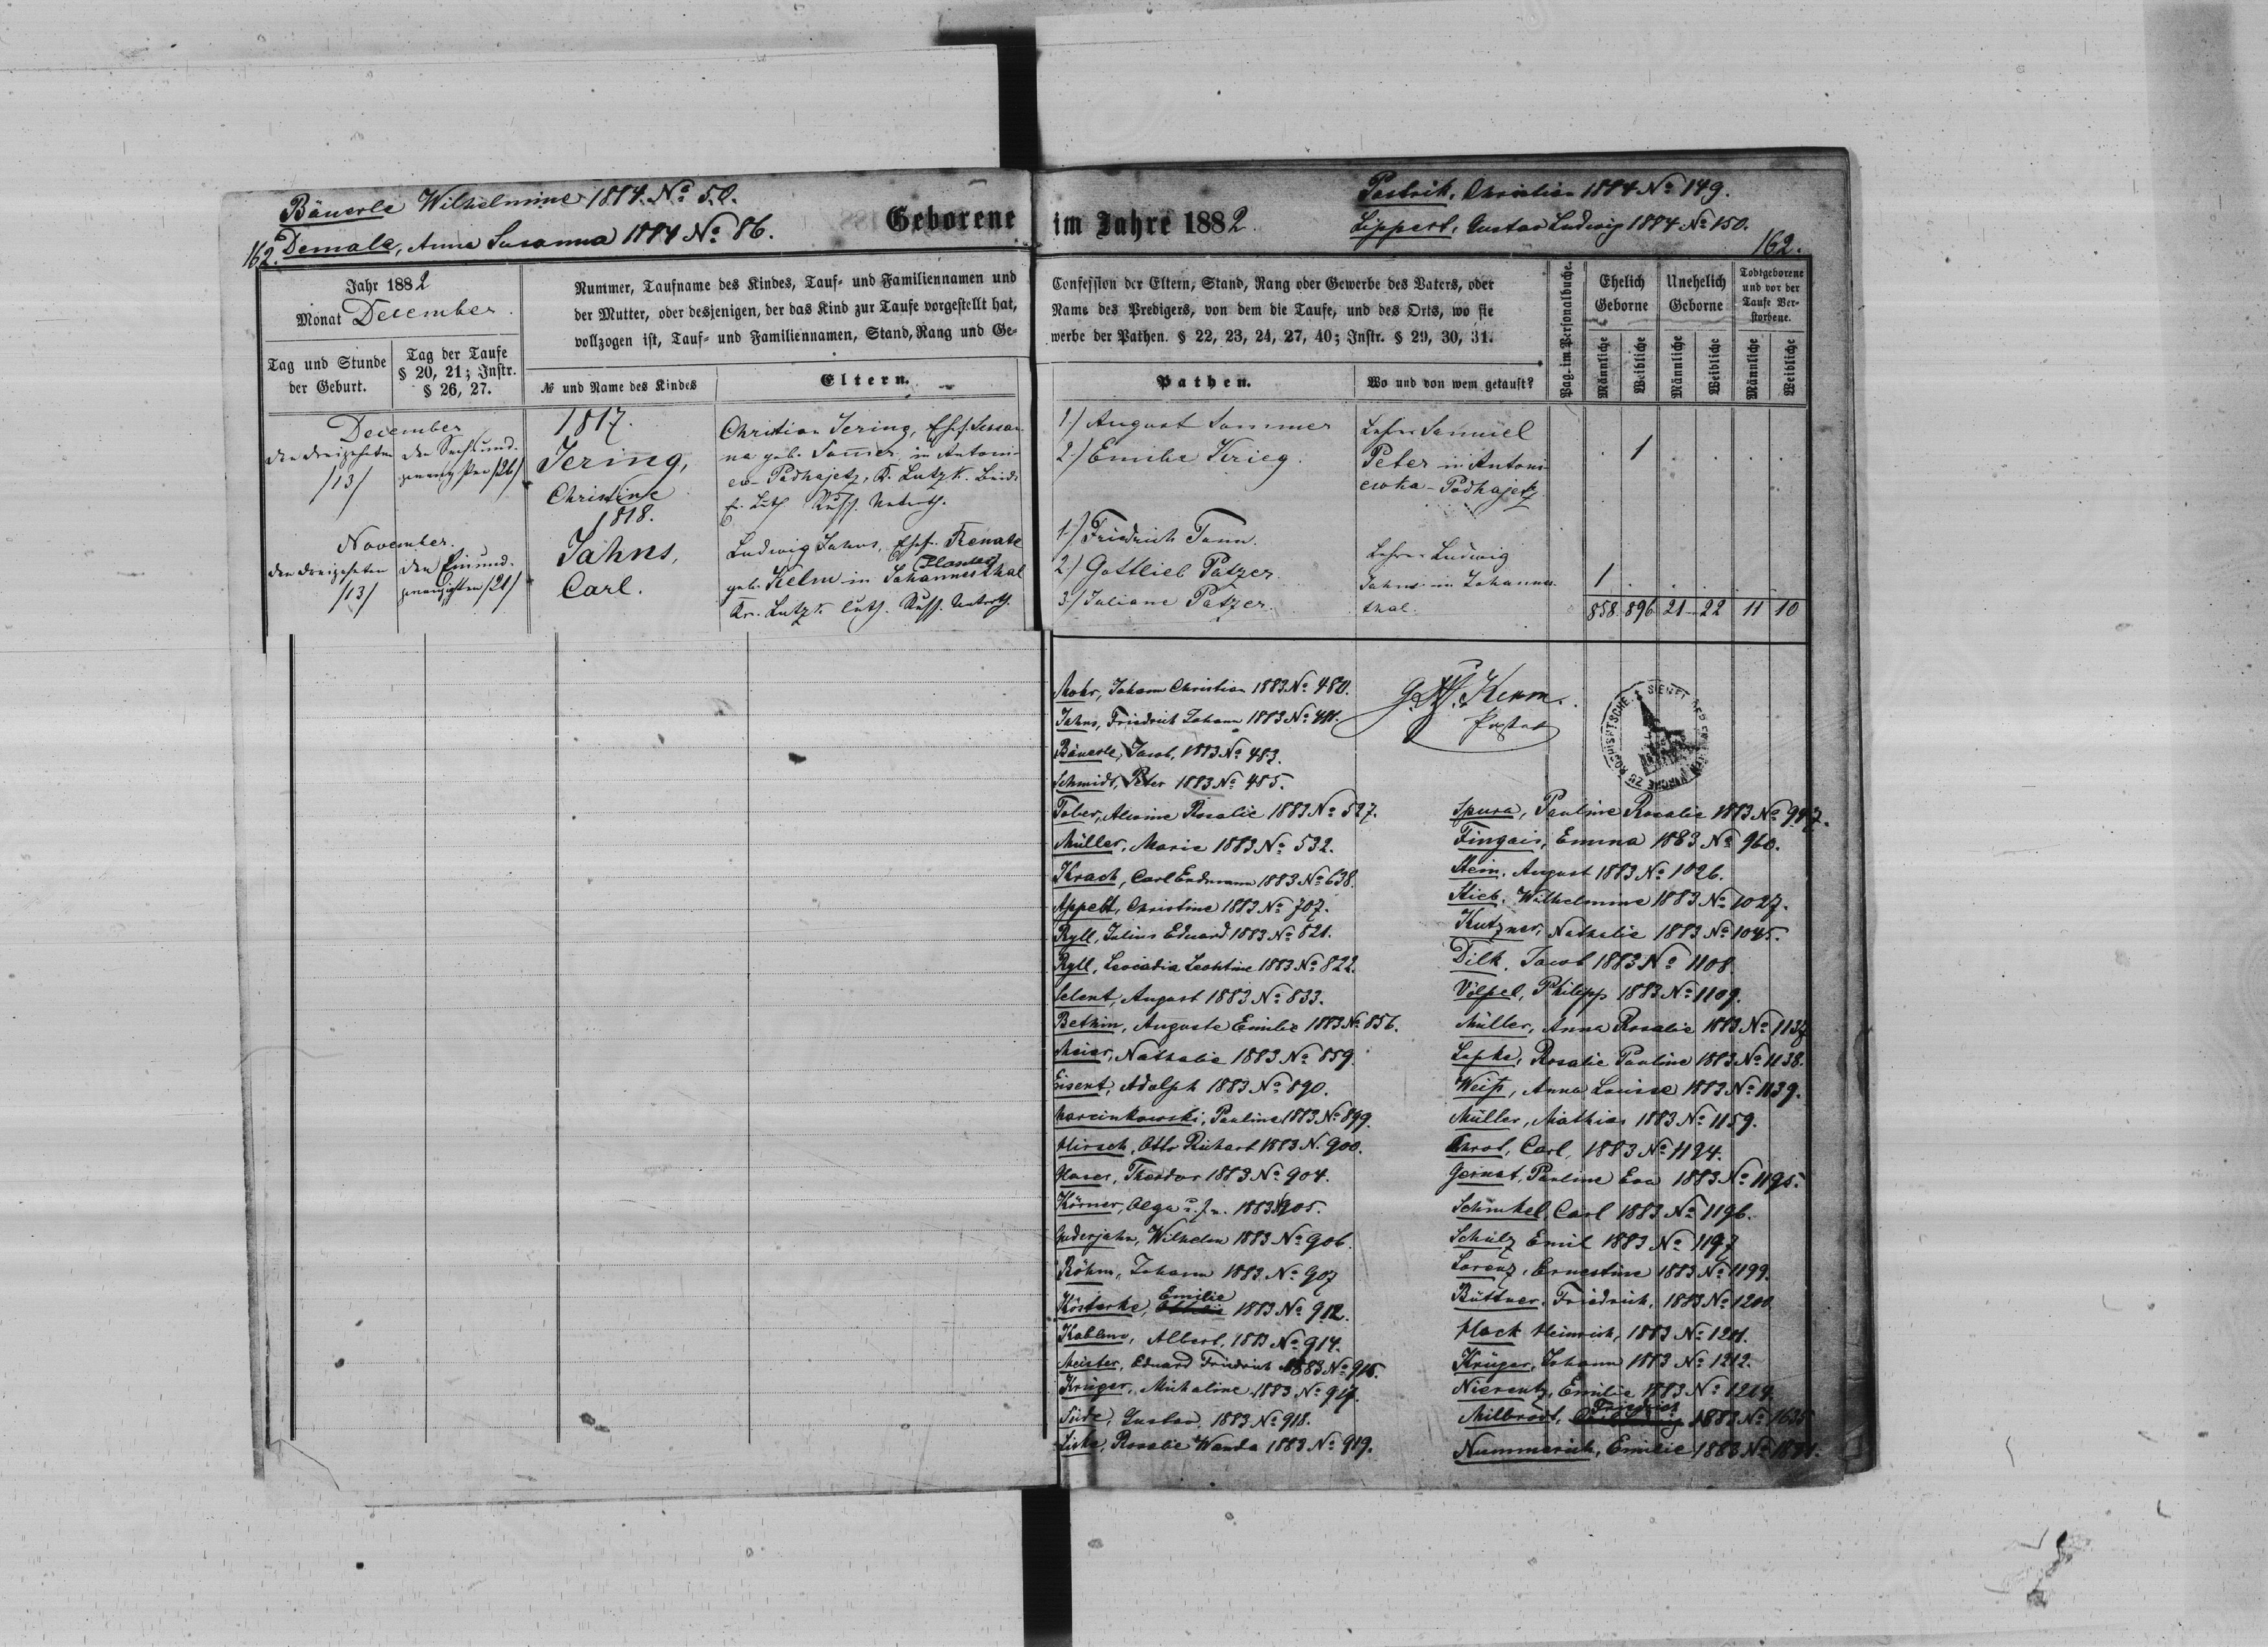 Bäuerle Wilhelmine 1884. No 50.
162. Demale, Anna Susanna 1884 No 86.
Geborene
Jahr 1882
Monat December.
Nummer, Taufname des Kindes, Tauf- und Familiennamen und
der Mutter, oder desjenigen, der das Kind zur Taufe vorgestellt hat,
vollzogen ist, Tauf- und Familiennamen, Stand, Rang und Ge-
Tag und Stunde
der Geburt.
Tag der Taufe
§ 20, 21; Instr.
§ 26, 27.
№ und Name des Kindes
Eltern.
December
den dreizehnten
/13/
den Sechsund-
zwanzigsten /26/
1817.
Jering,
Christine
Christian Jering, Ehef. Susan-
na geb. Sommer in Antoni-
ew-Podhajetz, K. Lutzk. Beide
ev. Luth. Russ. Unterth.
November.
den dreizehnten
/13/
den Einund-
zwanzigsten /21/
1818.
Jahns,
Carl.
Ludwig Jahns, Ehef. Renate
geb. Kelm in Johannesthal
Kr. Lutzk. luth. Russ. Unterth.
Pastrik, Christian 1884 No 149.
Lippert, Gustav Ludwig 1884 No 150.
162.
im Jahre 1882.
Confession der Eltern, Stand, Rang oder Gewerbe des Vaters, oder
Name des Predigers, von dem die Taufe, und des Orts, wo sie
werbe der Pathen. § 22, 23, 24, 27, 40; Instr. § 29, 30, 31.
Pathen.
Wo und von wem getauft?
Pag. im Personalbuche.
Ehelich
Geborne
Unehelich
Geborne
Todtgeborene
und vor der
Taufe Ver-
storbene.
Männliche
Weibliche
Männliche
Weibliche
Männliche
Weibliche
1.) August Sommer
2.) Emilie Krieg.
Lehrer Samuel
Peter in Antoni-
ewka-Podhajetz
1
1.) Friedrich Tann.
2.) Gottlieb Patzer
3.) Juliane Patzer.
Lehrer Ludwig
Jahns in Johannes-
thal.
1
858. 896 21 22 11 10
Mohr, Johann Christian 1883 No 480.
Jahns, Friedrich Johann 1883 No 481.
Bäuerle, Jacob, 1883 No 483.
Schmidt, Peter 1883 No 485.
Tober, Alwine Rosalie 1883 No 527.
Müller, Marie 1883 No 532.
Krach, Carl Erdmann 1883 No 638.
Appelt, Christine 1883 No 707.
Ryll, Julius Eduard 1883 No 821.
Ryll, Leocadia Leontine 1883 No 822.
Selent, August 1883 No 833.
Bethin, Auguste Emilie 1883 No 856.
Meier, Nathalie 1883 No 859.
Eisent, Adolph 1883 No 890.
Marcinkowski, Pauline 1883 No 899.
Hirsch, Otto Richart 1883 N. 900.
Haser, Theodor 1883 No 904.
Körner, Olga 1883 905.
Guderjahn, Wilhelm 1883 No 906.
Böhm, Johann 1883 No 907
Emilie
Kösterke, 1883 No 912.
Kablene, Albert, 1883 No 914.
Meister, Eduard Friedrich 1883 No 915.
Krüger, Michaline 1883 No 917.
Gustav, 1883 No 918.
Rosalie Wanda 1883 No 919.
Kerm.
Pastor
Spura, Pauline Rosalie 1883 No
Fingais, Emma 1883 No 960.
Stein, August 1883 No 1026.
Stieb, Wilhelmine 1883 No 1027.
Kutzner, Nathalie 1883 No 1045.
Dilk, Jacob 1883 No 1108
Völpel, Philipp 1883 No 1109.
Müller, Anna Rosalie 1883 No 1137
Lepke, Rosalie Pauline 1883 No 1138.
Weiß, Anna Louise 1883 No 1139.
Müller, Mathias 1883 No 1159.
Carl, 1883 No 1194.
Gernat, Pauline Eva 1883 No 1195.
Schinkel, Carl 1883 No 1196.
Schulz Emil 1883 No 1197
Lorenz, Ernestine 1883 No 1199.
Büttner, Friedrich, 1883 No 1200.
Hock Heinrich, 1883 No 1201.
Krüger, Johann 1883 No 1212.
Nierentz, Emilie 1883 No 1214.
Friedrich
Milbrodt, 1883 No 1635
Nummerich, Emilie 1883 No